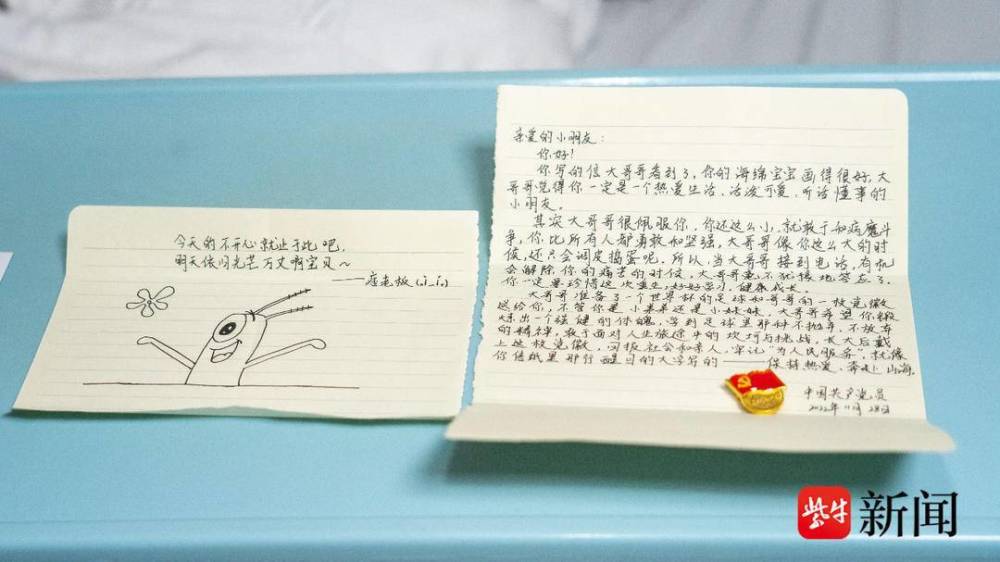 今天的不开心就止于此吧,
明天依旧光芒万丈啊宝贝~
——痞老板(ì_í)
亲爱的小朋友:
你好!
你写的信大哥哥看到了,你的海绵宝宝画得很好,大
哥哥觉得你一定是一个热爱生活、活泼可爱、听话懂事的
小朋友。
其实大哥哥很佩服你,你还这么小,就敢于和病魔斗
争,你比所有人都勇敢和坚强,大哥哥像你这么大的时
候,还只会调皮捣蛋呢。所以,当大哥哥接到电话,有机
会解除你的痛苦的时候,大哥哥毫不犹豫地答应了。
你一定要珍惜这次重生,好好学习,健康成长。
大哥哥准备了一个世界杯的足球和哥哥的一枚党徽
送给你,不管你是小弟弟还是小妹妹,大哥哥希望你锻
炼出一个强健的体魄,学到足球里那种不抛弃、不放弃
的精神,敢于面对人生旅途中的坎坷与挑战,长大后戴
上这枚党徽,回报社会和亲人,牢记“为人民服务”,就像
你信纸里那行醒目的大字写的——保持热爱,奔赴山海。
中国共产党员
2022年11月28日
紫牛 新闻